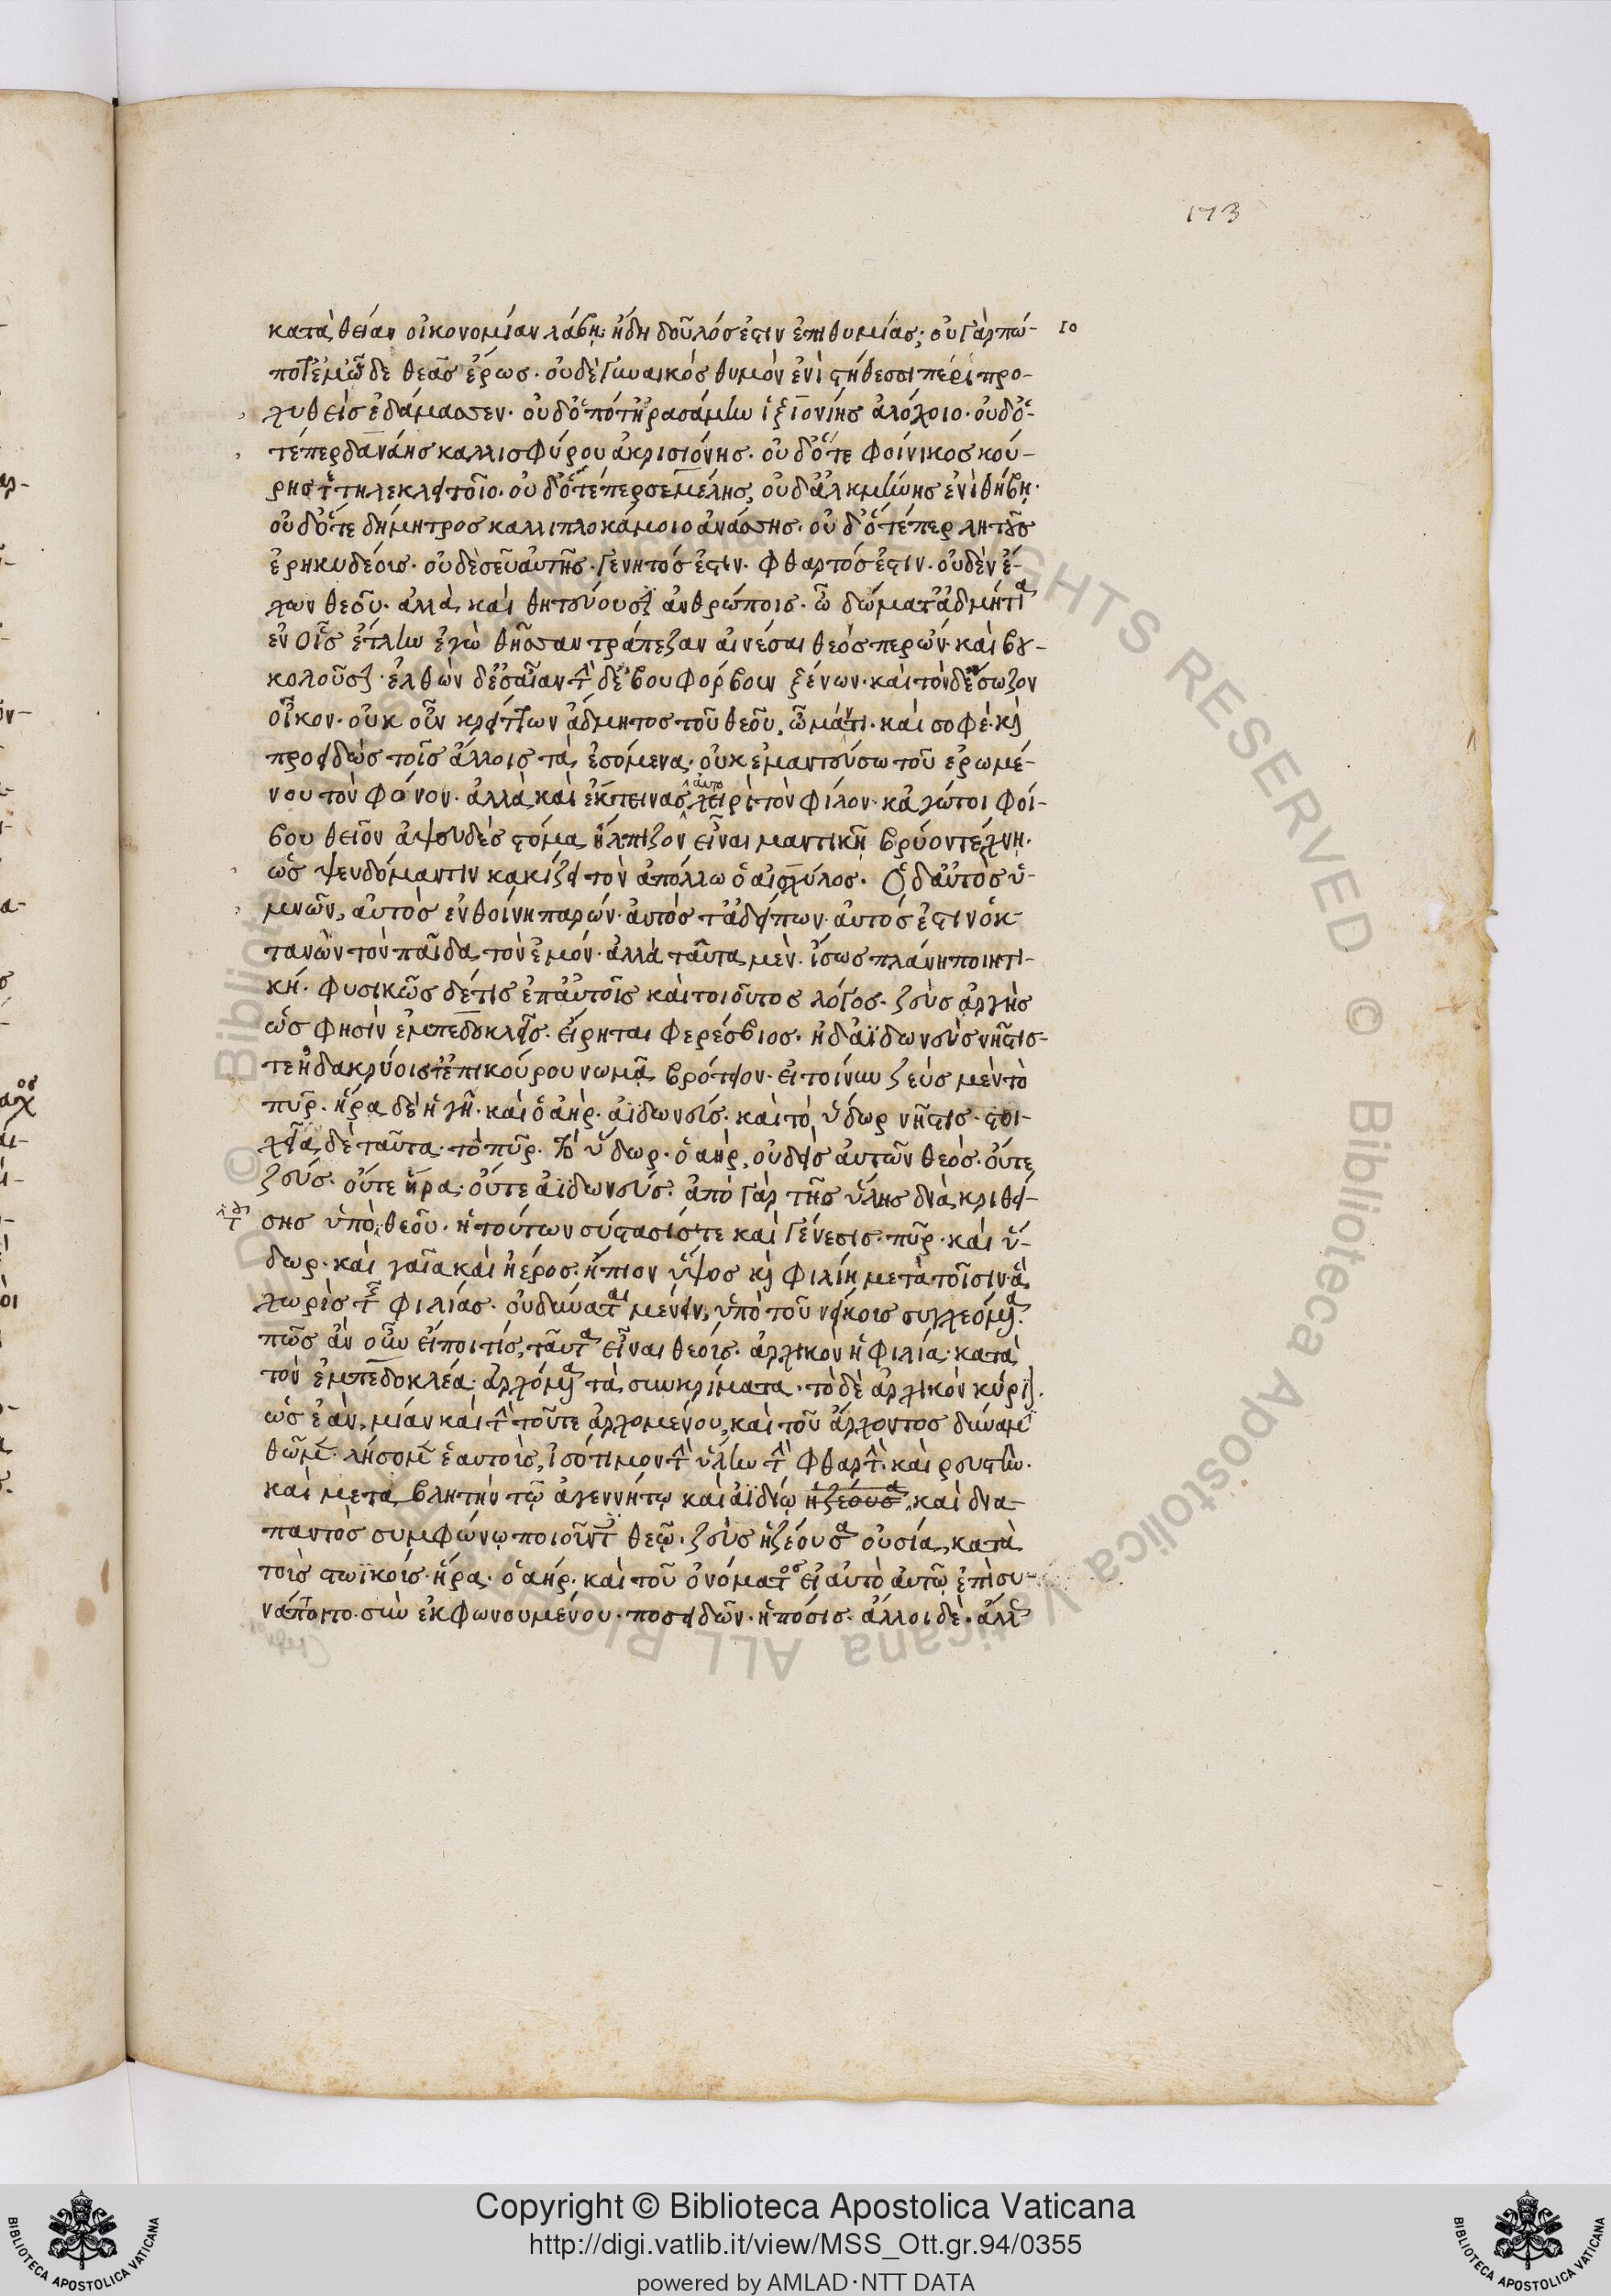 173
κατὰ θείαν οἰκονομίαν λάβῃ· ἤδη δοῦλός ἐστιν ἐπιθυμίας; οὐ γὰρ πώ- 10
ποτ' ἐμὦδε θεᾶς ἔρως· οὐδὲ γυναικὸς θυμὸν ἐνὶ στήθεσσι περὶ προ-
χυθεὶς ἐδάμασσεν· οὐδ' ὁπότ' ἠρασάμην ἰξιονίης ἀλόχοιο· οὐδ' ὅ-
τέ περ δανάης καλλισφύρου ἀκρισιόνης· οὐδ' ὅτε φοίνικος κού-
ρης τηλεκλειτοῖο· οὐδ' ὅτέ περ σεμέλης, οὐδ' ἀλκμήνης ἐνὶ θήβῃ·
οὐδ' ὅτε δήμητρος καλλιπλοκάμοιο ἀνάσσης· οὐδ' ὅτέ περ λητοῦς
ἐρηκυδέοις· οὐδὲ σεῦ αὐτῆς· γενητός ἐστιν· φθαρτός ἐστιν· οὐδὲν ἔ-
χων θεοῦ· ἀλλὰ καὶ θητεύουσι ἀνθρώποις· ὦ δώματ' ἀδμήτια
ἐν οἷς ἔτλην ἐγὼ θῆσσαν τράπεζαν αἰνέσαι θεός περ ὤν· καὶ βου-
κολοῦσι· ἐλθὼν δ' ἐς αἶαν τὴν δ' ἐβουφόρβουν ξένων· καὶ τόνδ' ἔσωζον
οἶκον· οὐκοῦν κρείττων ἄδμητος τοῦ θεοῦ, ὦ μάντι· καὶ σοφέ· καὶ
προειδὼς τοῖς ἄλλοις τὰ ἐσόμενα· οὐκ ἐμαντεύσω τοῦ ἐρωμέ-
νου τὸν φόνον· ἀλλὰ καὶ ἔκτεινας αὐτο χειρὶ τὸν φίλον· κἀγώ τοι φοί-
βου θεῖον ἀψευδὲς στόμα ἤλπιζον εἶναι μαντικῇ βρύον τέχνῃ·
ὡς ψευδόμαντιν κακίζει τὸν ἀπόλλω ὁ αἰσχύλος. Ὁ δ' αὐτὸς ὑ-
μνῶν, αὐτὸς ἐν θοίνῃ παρών· αὐτὸς τάδ' εἰπων· αὐτός ἐστιν ὁ κ-
τανὼν τὸν παῖδα τὸν ἐμόν· ἀλλὰ ταῦτα μὲν· ἴσως πλάνη ποιητι-
κή· φυσικῶς δέ τις ἐπ' αὐτοῖς καὶ τοιοῦτος λόγος· ζεὺς ἀργὴς
ὥς φησὶν ἐμπεδοκλῆς· εἴρηται φερέσβιος· ἠδ' ἀϊδωνεὺς νῆστις-
τε ἣ δακρύοις τ' ἐπικούρου νωμᾷ βρότειον· εἰ τοίνυν ζεὺς μὲν τὸ
πῦρ· ἥρα δὲ ἡ γῆ· καὶ ὁ ἀὴρ· ἀϊδωνεύς· καὶ τὸ ὕδωρ νῆστις· στοι-
χεῖα δὲ ταῦτα· τὸ πῦρ· τὸ ὕδωρ· ὁ ἀὴρ, οὐδεὶς αὐτῶν θεὸς· οὔτε
ζεύς· οὔτε ἥρα· οὔτε ἀϊδωνεύς· ἀπὸ γὰρ τῆς ὕλης διακριθεί-
σης ὑπὸ θεοῦ· ἡ τούτων σύστασίς τε καὶ γένεσις· πῦρ· καὶ ὕ-
δωρ· καὶ γαῖα καὶ ἠέρος· ἤπιον ὕψος καὶ φιλίη μετὰ τοῖσιν· ἃ
χωρὶς τῆς φιλίας· οὐ δύναται μένειν, ὑπὸ τοῦ νείκοις συγχεόμενα·
πῶς ἂν οὖν εἴποι τίς, ταῦτα εἶναι θεούς· ἀρχικὸν ἡ φιλία· κατὰ
τὸν ἐμπεδοκλέα· ἀρχόμενα τὰ συγκρίματα· τὸ δὲ ἀρχικὸν κύριον·
ὡς ἐὰν, μίαν καὶ τὴν τοῦτε ἀρχομένου, καὶ τοῦ ἄρχοντος δύναμιν
θῶμεν· λήσομεν ἑαυτοὺς, ἰσότιμον τὴν ὕλην τὴν φθαρτὴν· καὶ ρευστὴν·
καὶ μεταβλητὴν τῷ ἀγεννήτῳ καὶ ἀϊδίῳ ἡ ζέουσα, καὶ δια-
παντὸς συμφώνῳ ποιοῦντες θεῷ· ζεὺς ἡ ζέουσα οὐσία, κατὰ
τοὺς στωϊκούς· ἥρα· ὁ ἀήρ· καὶ τοῦ ὀνόματος εἰ αὐτὸ αὐτῷ ἐπισυ-
νάπτοιτο· συνεκφωνουμένου· ποσειδῶν· ἡ πόσις· ἄλλοι δὲ· ἄλλ
Copyright © Biblioteca Apostolica Vaticana
http://digi.vatlib.it/view/MSS_Ott.gr.94/0355
powered by AMLAD·NTT DATA